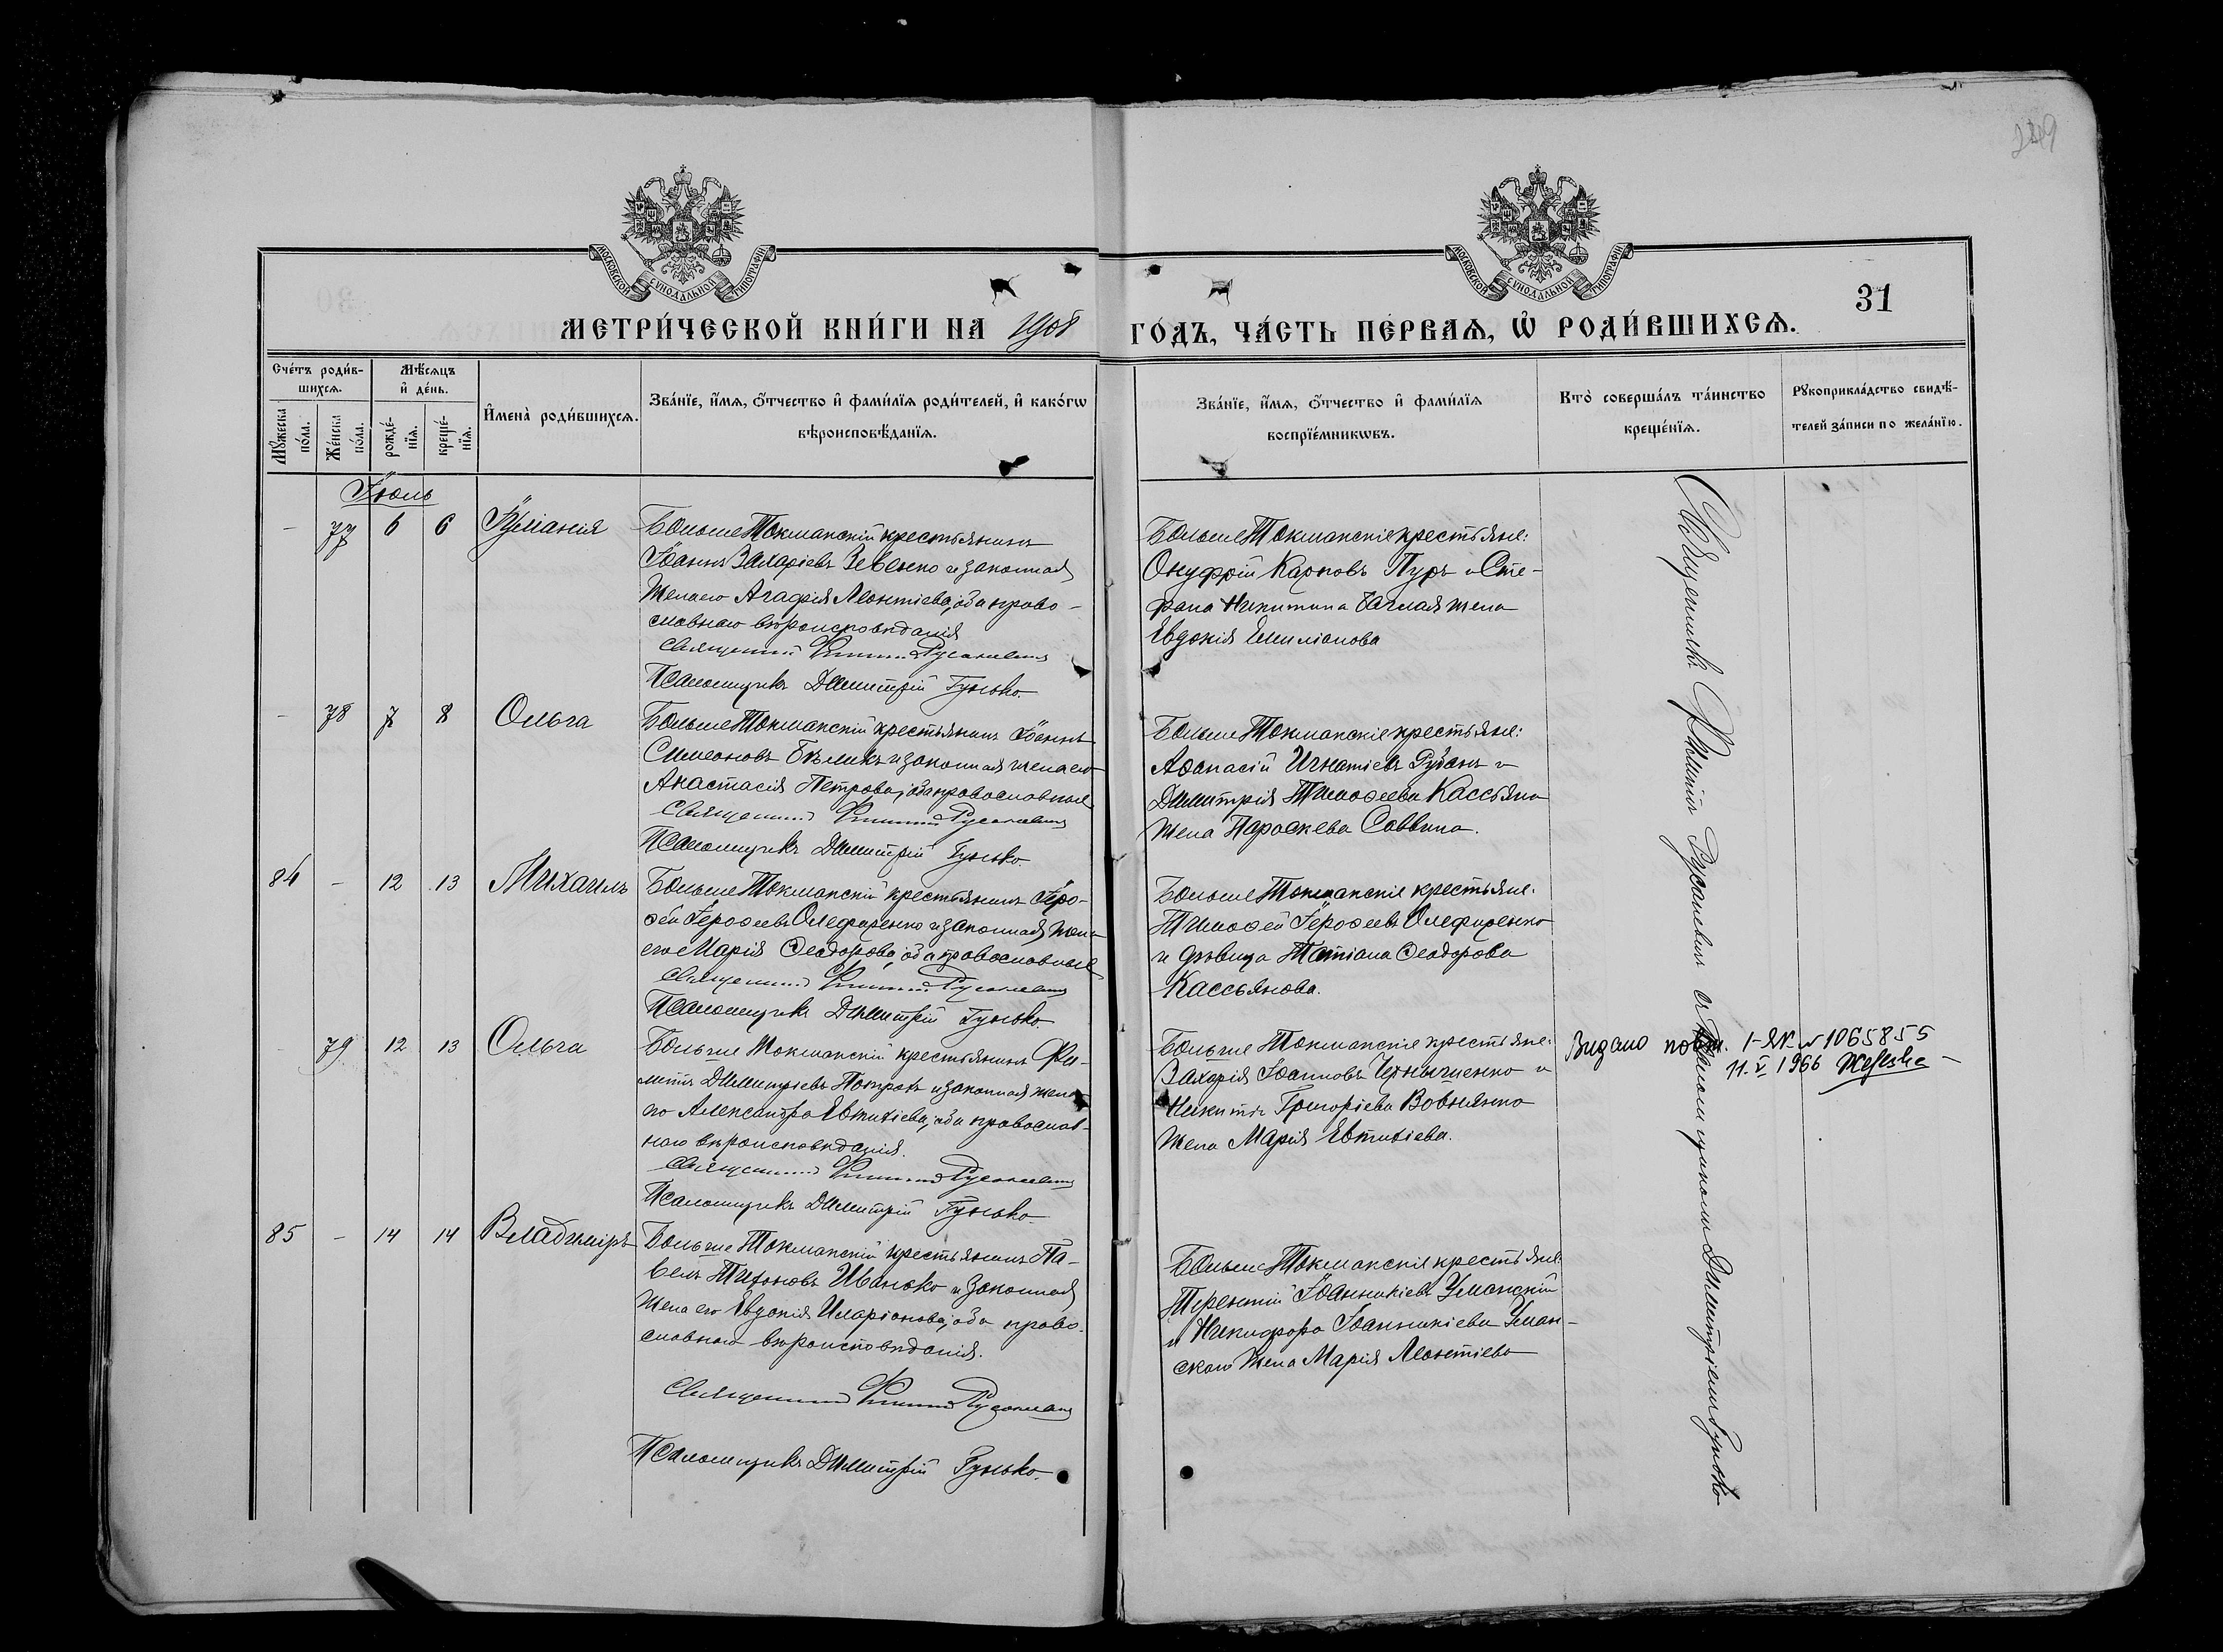 249
МОСКОВСКОЙ СУНОДАЛЬНОЙ ТИПОГРАФІИ
МОСКОВСКОЙ СУНОДАЛЬНОЙ ТИПОГРАФІИ
31
МЕТРИ́ЧЕСКОЙ КНИ́ГИ НА 1908 ГО́ДЪ, ЧА́СТЬ ПЕ́РВАѦ, Ѡ҆ РОДИ́ВШИХСѦ.
Сче́тъ роди́в-
шихсѧ.
Мꙋ́жеска по́ла.
Же́нска по́ла.
Мѣ́сѧцъ
и҆ де́нь.
рожде́-
нїѧ.
креще́-
нїѧ.
И҆мена̀ роди́вшихсѧ.
Зва́нїе, и҆́мѧ, ѻ҆́тчество и҆ фами́лїѧ роди́телей, и҆ како́гѡ
вѣроисповѣ́данїѧ.
Зва́нїе, и҆́мѧ, ѻ҆́тчество и҆ фами́лїѧ
воспрїе́мникѡвъ.
Кто̀ соверша́лъ та́инство
креще́нїѧ.
Рꙋкоприкла́дство свидѣ́-
телей за́писи по жела́нїю.
Іюль
- 77 6 6 Іуліанія
БольшеТокмакскій крестьянинъ
Іоаннъ Захаріевъ Зевенко и законная
жена его Агафія Леонтіева, оба право-
славнаго вѣроисповѣданія
Священникъ Филиппъ Русаневичъ
Псаломщикъ Димитрій Гунько.
БольшеТокмакскіе крестьяне:
Онуфрій Карповъ Пуръ и Сте-
фана Никитина жена
Евдокія Емиліанова
- 78 7 8 Ольга
БольшеТокмакскій крестьянинъ Іоаннъ
Симеоновъ Бѣликъ и законная жена его
Анастасія Петрова, оба православные
Священникъ Филиппъ Русаневичъ
Псаломщикъ Димитрій Гунько.
БольшеТокмакскіе крестьяне:
Аѳанасій Игнатіевъ Рубанъ и
Димитрія Тимоѳеева Кассьяна
жена Параскева Саввина.
84 - 12 13 Михаилъ
БольшеТокмакскій крестьянинъ Іеро-
ѳей Іероѳеевъ Олефиренко и законная жена
его Марія Ѳеодорова, оба православные
Священникъ Филиппъ Русаневичъ
Псаломщикъ Димитрій Гунько.
БольшеТокмакскіе крестьяне:
Тимоѳей Іероѳеевъ Олефиренко
и дѣвица Татіана Ѳеодорова
Кассьянова.
- 79 12 13 Ольга
Больше Токмакскій крестьянинъ Фи-
липпъ Димитріевъ и законная жена
его Александра Евтихіева, оба православ-
наго вѣроисповѣданія.
Священникъ Филиппъ Русаневичъ
Псаломщикъ Димитрій Гунько.
Больше Токмакскіе крестьяне:
Захарія Іоанновъ Чернышенко и
Никиты Григоріева Вовнянко
жена Марія Евтихіева.
Видано повт. І-ЯП № 1065855
11.V 1966
85 - 14 14 Владиміръ
Больше Токмакскій крестьянинъ Па-
велъ Тихоновъ Иванско и законная
жена его Евдокія Иларіонова, оба право-
славнаго вѣроисповѣданія.
Священникъ Филиппъ Русаневичъ
Псаломщикъ Димитрій Гунько.
БольшеТокмакскіе крестьяне:
Терентій Іоанникіевъ Уманскій
и Никифора Іоанникіева Уман-
скаго жена Марія Леонтіева
Священникъ Филиппъ Русаневичъ съ псаломщикомъ Димитріемъ Гунько